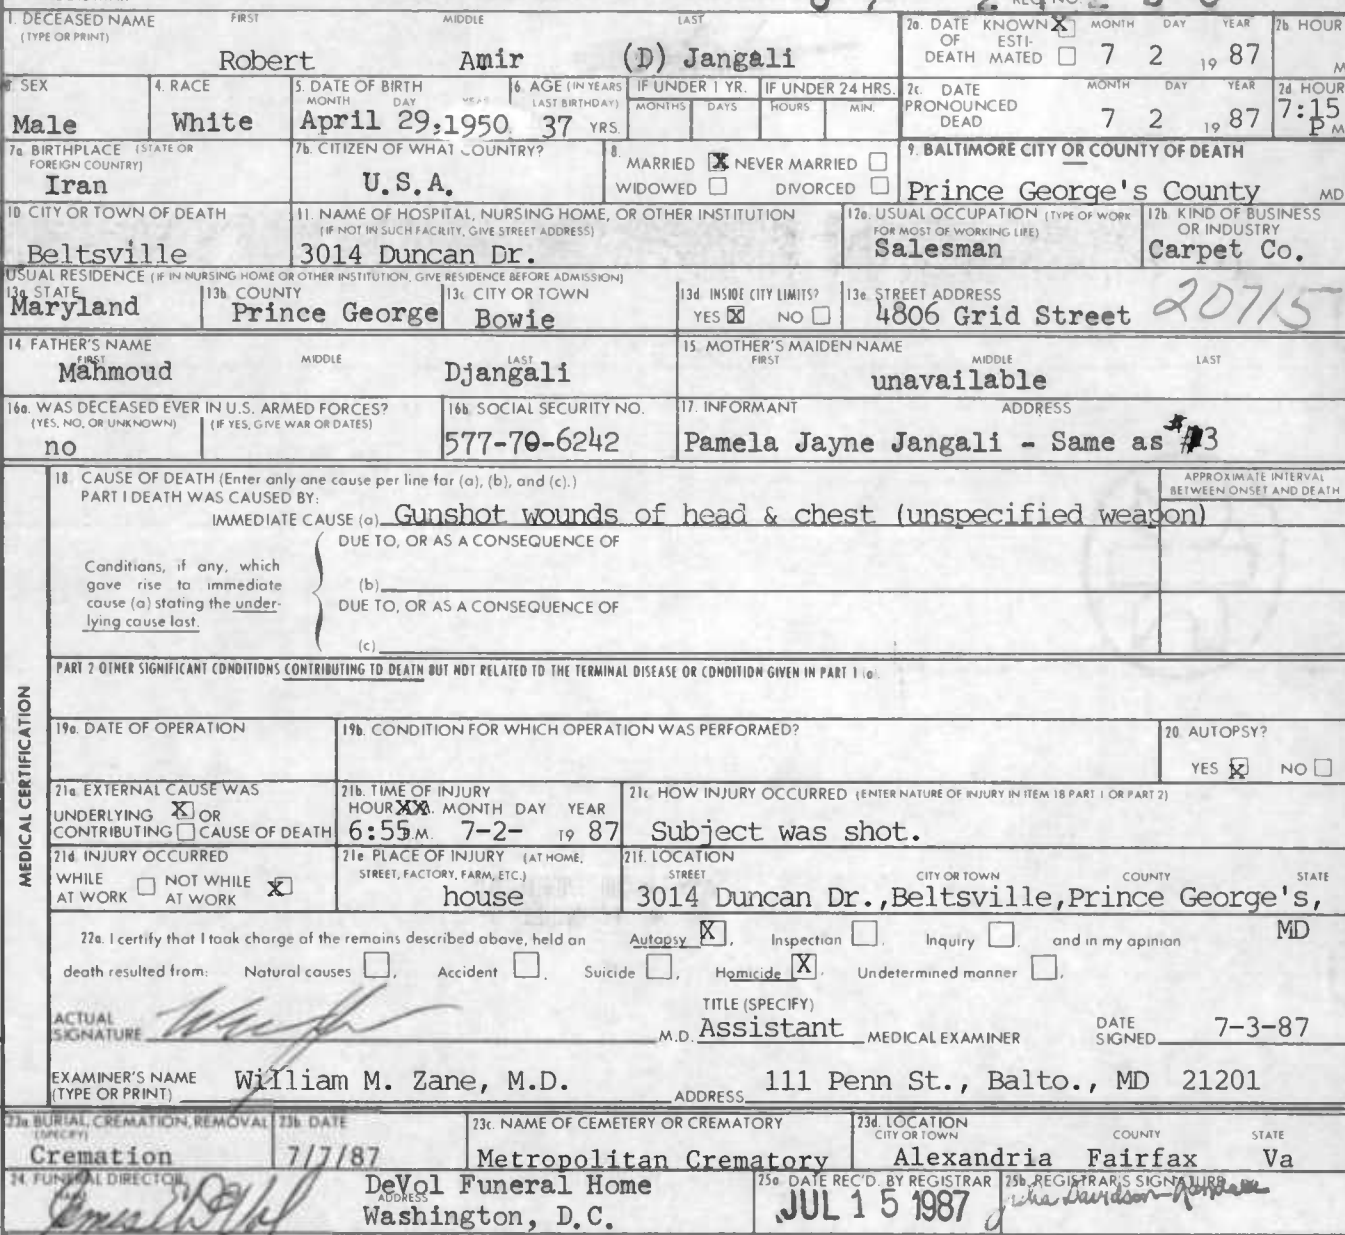 1. DECEASED NAME FIRST MIDDLE LAST
(TYPE OR PRINT)
Robert Amir (D) Jangali
2a. DATE KNOWN X MONTH DAY YEAR
OF ESTI-
DEATH MATED 7 2 19 87
2b. HOUR
M
3. SEX
Male
4. RACE
White
5. DATE OF BIRTH
MONTH DAY YEAR
April 29, 1950
6. AGE (IN YEARS
LAST BIRTHDAY)
37 YRS.
IF UNDER 1 YR.
MONTHS DAYS
IF UNDER 24 HRS.
HOURS MIN.
2c. DATE MONTH DAY YEAR
PRONOUNCED
DEAD 7 2 19 87
2d HOUR
7:15
P M
7a BIRTHPLACE (STATE OR
FOREIGN COUNTRY)
Iran
7b. CITIZEN OF WHAT COUNTRY?
U.S.A.
8.
MARRIED X NEVER MARRIED
WIDOWED DIVORCED
9. BALTIMORE CITY OR COUNTY OF DEATH
Prince George's County MD
10 CITY OR TOWN OF DEATH
Beltsville
11. NAME OF HOSPITAL, NURSING HOME, OR OTHER INSTITUTION
(IF NOT IN SUCH FACILITY, GIVE STREET ADDRESS)
3014 Duncan Dr.
12a. USUAL OCCUPATION (TYPE OF WORK
FOR MOST OF WORKING LIFE)
Salesman
12b. KIND OF BUSINESS
OR INDUSTRY
Carpet Co.
USUAL RESIDENCE (IF IN NURSING HOME OR OTHER INSTITUTION, GIVE RESIDENCE BEFORE ADMISSION)
13a STATE
Maryland
13b. COUNTY
Prince George
13c CITY OR TOWN
Bowie
13d INSIDE CITY LIMITS?
YES X NO
13e. STREET ADDRESS
4806 Grid Street 20715
14. FATHER'S NAME
FIRST MIDDLE LAST
Mahmoud Djangali
15. MOTHER'S MAIDEN NAME
FIRST MIDDLE LAST
unavailable
16a. WAS DECEASED EVER IN U.S. ARMED FORCES?
(YES, NO, OR UNKNOWN) (IF YES, GIVE WAR OR DATES)
no
16b. SOCIAL SECURITY NO.
577-70-6242
17. INFORMANT ADDRESS
Pamela Jayne Jangali - Same as #13
MEDICAL CERTIFICATION
18 CAUSE OF DEATH (Enter only one cause per line for (a), (b), and (c).)
PART I DEATH WAS CAUSED BY:
IMMEDIATE CAUSE (a) Gunshot wounds of head & chest (unspecified weapon)
APPROXIMATE INTERVAL
BETWEEN ONSET AND DEATH
DUE TO, OR AS A CONSEQUENCE OF
Conditions, if any, which
gave rise to immediate
cause (a) stating the under-
lying cause last.
(b)
DUE TO, OR AS A CONSEQUENCE OF
(c)
PART 2 OTHER SIGNIFICANT CONDITIONS CONTRIBUTING TO DEATH BUT NOT RELATED TO THE TERMINAL DISEASE OR CONDITION GIVEN IN PART 1 (a).
19a. DATE OF OPERATION
19b. CONDITION FOR WHICH OPERATION WAS PERFORMED?
20 AUTOPSY?
YES X NO
21a EXTERNAL CAUSE WAS
UNDERLYING X OR
CONTRIBUTING CAUSE OF DEATH
21b. TIME OF INJURY
HOUR XX. MONTH DAY YEAR
6:55 P.M. 7-2- 19 87
21c HOW INJURY OCCURRED (ENTER NATURE OF INJURY IN ITEM 18 PART 1 OR PART 2)
Subject was shot.
21d INJURY OCCURRED
WHILE AT WORK NOT WHILE AT WORK X
21e PLACE OF INJURY (AT HOME,
STREET, FACTORY, FARM, ETC.)
house
21f. LOCATION
STREET CITY OR TOWN COUNTY STATE
3014 Duncan Dr., Beltsville, Prince George's,
MD
22a. I certify that I took charge of the remains described above, held an Autopsy X, Inspection , Inquiry , and in my opinion
death resulted from: Natural causes , Accident , Suicide , Homicide X, Undetermined manner .
ACTUAL
SIGNATURE M.D.
TITLE (SPECIFY)
Assistant MEDICAL EXAMINER
DATE
SIGNED 7-3-87
EXAMINER'S NAME
(TYPE OR PRINT) William M. Zane, M.D.
ADDRESS 111 Penn St., Balto., MD 21201
23a BURIAL, CREMATION, REMOVAL
(SPECIFY)
Cremation
23b. DATE
7/7/87
23c. NAME OF CEMETERY OR CREMATORY
Metropolitan Crematory
23d. LOCATION
CITY OR TOWN COUNTY STATE
Alexandria Fairfax Va
24. FUNERAL DIRECTOR
DeVol Funeral Home
ADDRESS
Washington, D.C.
25a. DATE REC'D. BY REGISTRAR
JUL 15 1987
25b. REGISTRAR'S SIGNATURE